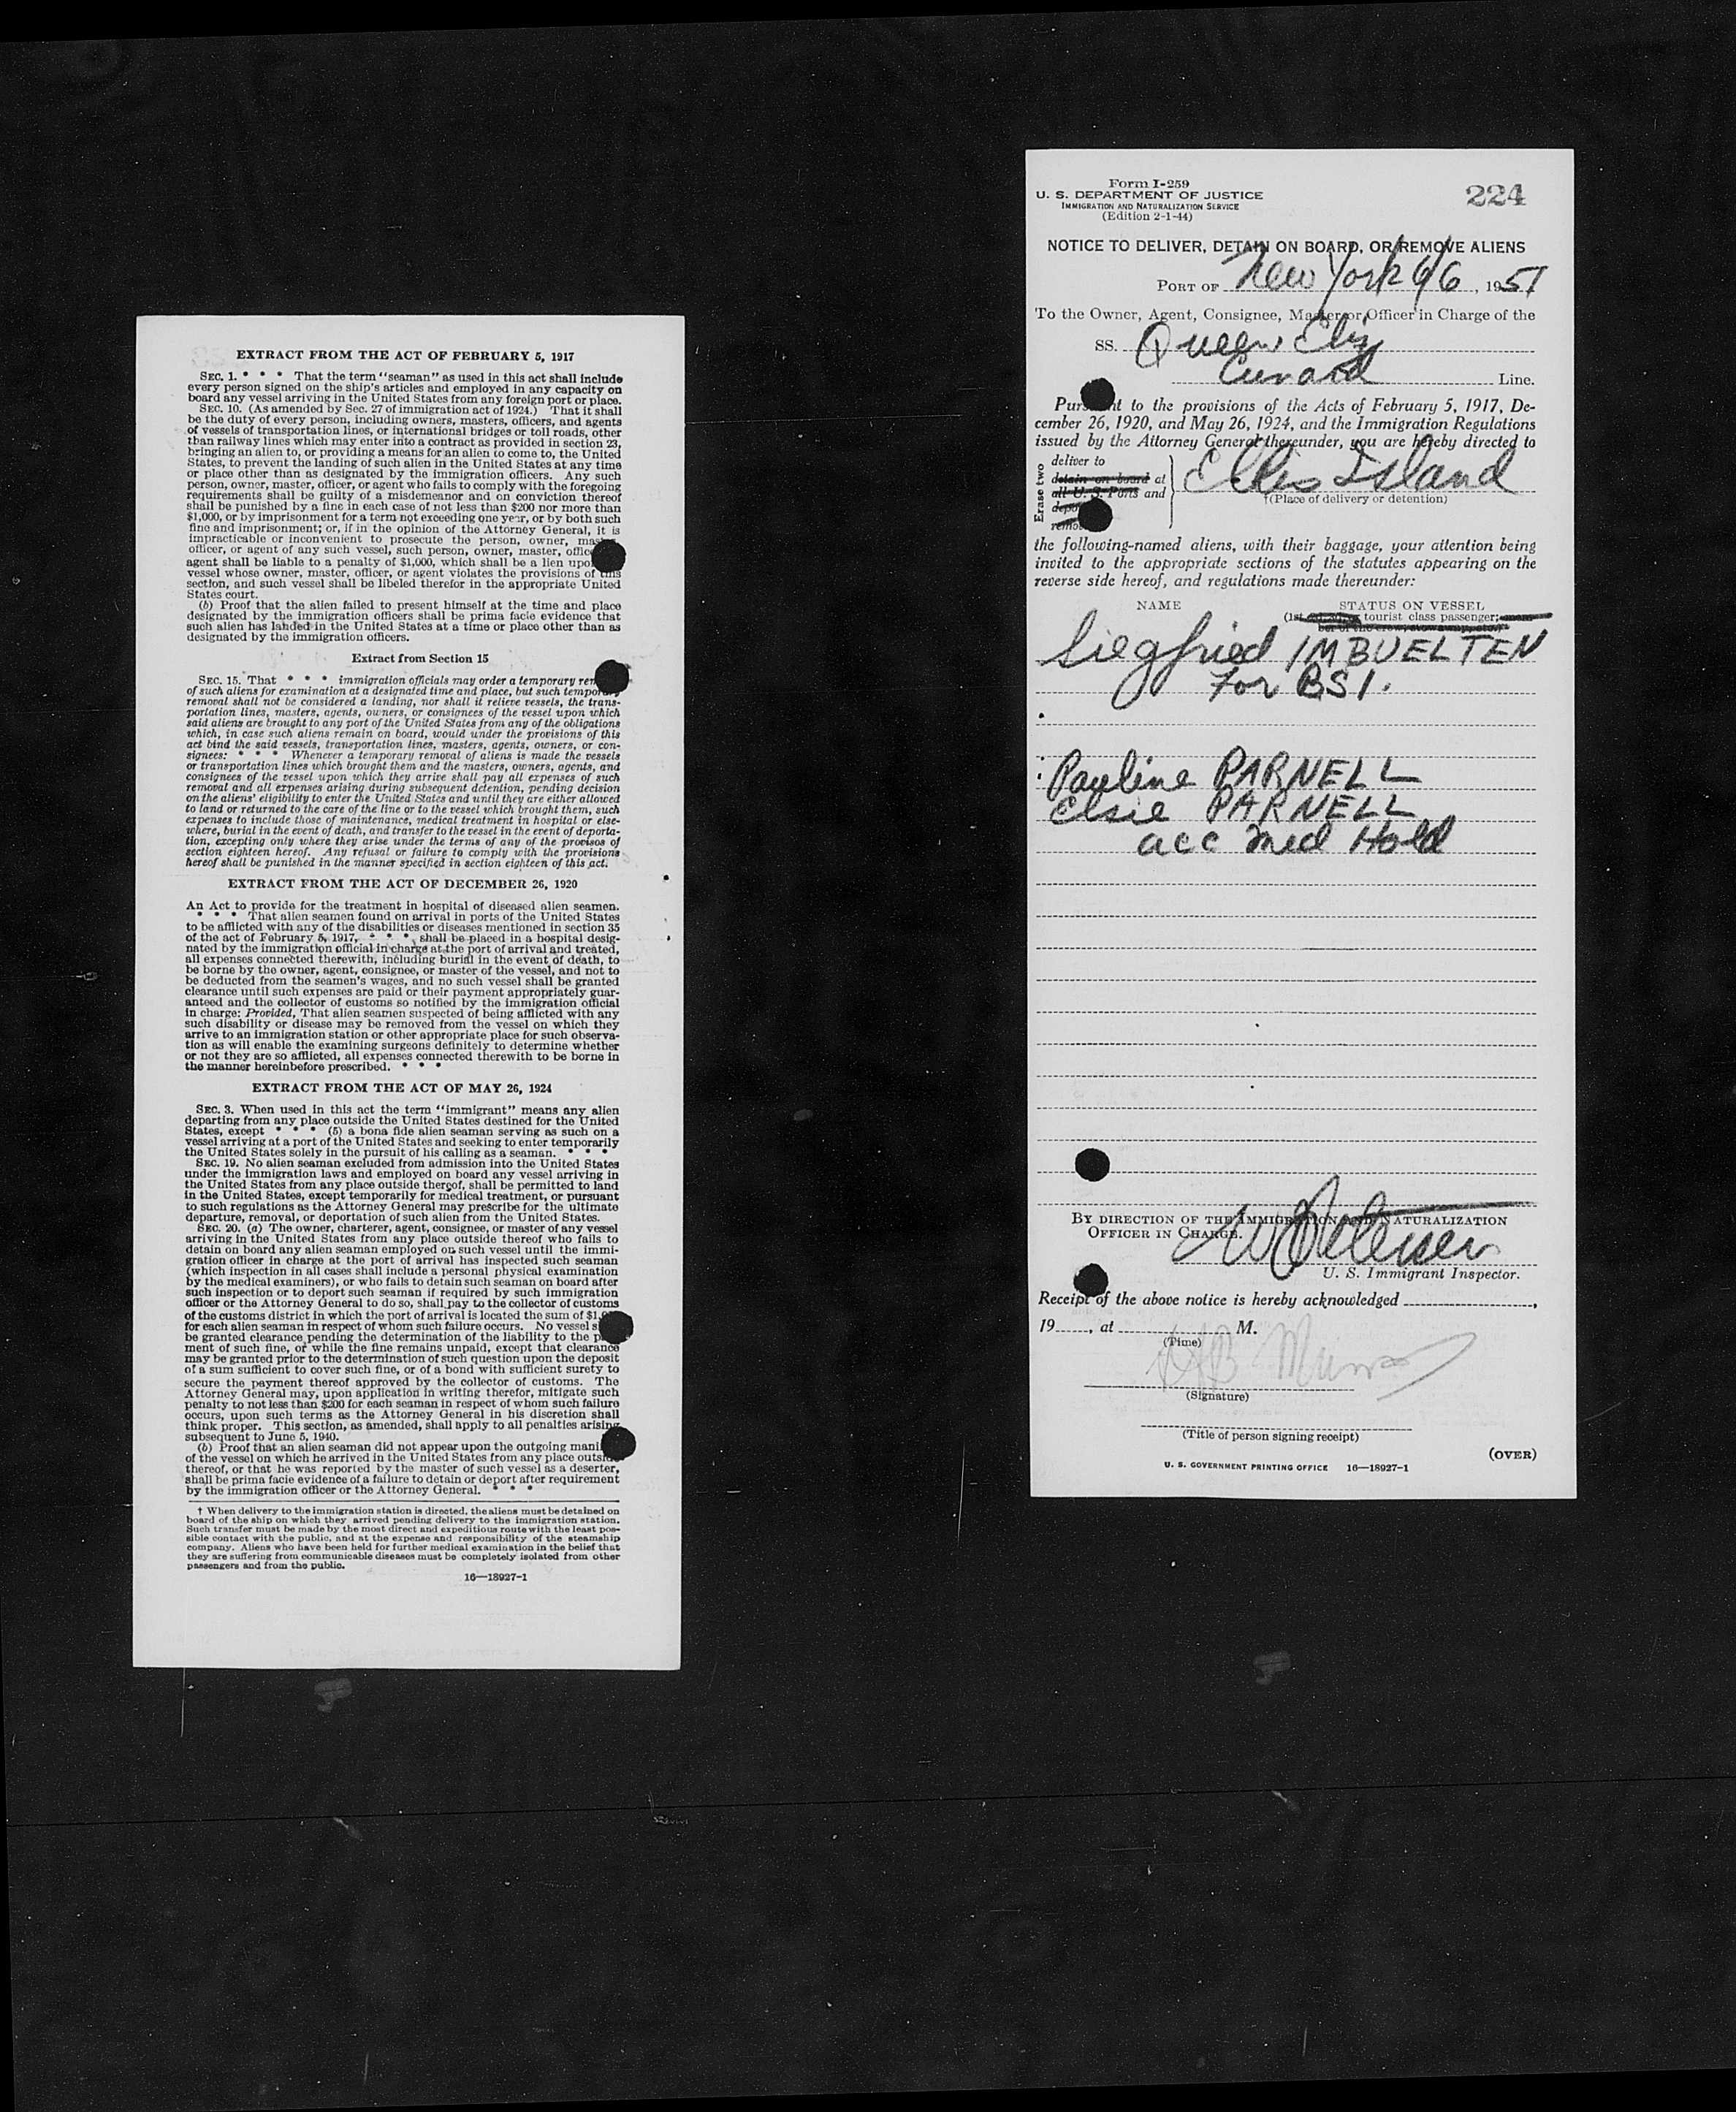 EXTRACT FROM THE ACT OF FEBRUARY 5, 1917
SEC. 1. * * * That the term "seaman" as used in this act shall include
every person signed on the ship's articles and employed in any capacity on
board any vessel arriving in the United States from any foreign port or place.
SEC. 10. (As amended by Sec. 27 of immigration act of 1924.) That it shall
be the duty of every person, including owners, masters, officers, and agents
of vessels of transportation lines, or international bridges or toll roads, other
than railway lines which may enter into a contract as provided in section 23,
bringing an alien to, or providing a means for an alien to come to, the United
States, to prevent the landing of such alien in the United States at any time
or place other than as designated by the immigration officers. Any such
person, owner, master, officer, or agent who fails to comply with the foregoing
requirements shall be guilty of a misdemeanor and on conviction thereof
shall be punished by a fine in each case of not less than $200 nor more than
$1,000, or by imprisonment for a term not exceeding one year, or by both such
fine and imprisonment; or, if in the opinion of the Attorney General, it is
impracticable or inconvenient to prosecute the person, owner, master,
officer, or agent of any such vessel, such person, owner, master, office
agent shall be liable to a penalty of $1,000, which shall be a lien upo
vessel whose owner, master, officer, or agent violates the provisions of this
section, and such vessel shall be libeled therefor in the appropriate United
States court.
(b) Proof that the alien failed to present himself at the time and place
designated by the immigration officers shall be prima facie evidence that
such alien has landed in the United States at a time or place other than as
designated by the immigration officers.
Extract from Section 15
SEC. 15. That * * * immigration officials may order a temporary rem
of such aliens for examination at a designated time and place, but such temporary
removal shall not be considered a landing, nor shall it relieve vessels, the trans-
portation lines, masters, agents, owners, or consignees of the vessel upon which
said aliens are brought to any port of the United States from any of the obligations
which, in case such aliens remain on board, would under the provisions of this
act bind the said vessels, transportation lines, masters, agents, owners, or con-
signees: * * * Whenever a temporary removal of aliens is made the vessels
or transportation lines which brought them and the masters, owners, agents, and
consignees of the vessel upon which they arrive shall pay all expenses of such
removal and all expenses arising during subsequent detention, pending decision
on the aliens' eligibility to enter the United States and until they are either allowed
to land or returned to the care of the line or to the vessel which brought them, such
expenses to include those of maintenance, medical treatment in hospital or else-
where, burial in the event of death, and transfer to the vessel in the event of deporta-
tion, excepting only where they arise under the terms of any of the provisos of
section eighteen hereof. Any refusal or failure to comply with the provisions
hereof shall be punished in the manner specified in section eighteen of this act.
EXTRACT FROM THE ACT OF DECEMBER 26, 1920
An Act to provide for the treatment in hospital of diseased alien seamen.
* * * That alien seamen found on arrival in ports of the United States
to be afflicted with any of the disabilities or diseases mentioned in section 35
of the act of February 5, 1917, * * * shall be placed in a hospital desig-
nated by the immigration official in charge at the port of arrival and treated,
all expenses connected therewith, including burial in the event of death, to
be borne by the owner, agent, consignee, or master of the vessel, and not to
be deducted from the seamen's wages, and no such vessel shall be granted
clearance until such expenses are paid or their payment appropriately guar-
anteed and the collector of customs so notified by the immigration official
in charge: Provided, That alien seamen suspected of being afflicted with any
such disability or disease may be removed from the vessel on which they
arrive to an immigration station or other appropriate place for such observa-
tion as will enable the examining surgeons definitely to determine whether
or not they are so afflicted, all expenses connected therewith to be borne in
the manner hereinbefore prescribed. * * *
EXTRACT FROM THE ACT OF MAY 26, 1924
SEC. 3. When used in this act the term "immigrant" means any alien
departing from any place outside the United States destined for the United
States, except * * * (5) a bona fide alien seaman serving as such on a
vessel arriving at a port of the United States and seeking to enter temporarily
the United States solely in the pursuit of his calling as a seaman. * * *
SEC. 19. No alien seaman excluded from admission into the United States
under the immigration laws and employed on board any vessel arriving in
the United States from any place outside thereof, shall be permitted to land
in the United States, except temporarily for medical treatment, or pursuant
to such regulations as the Attorney General may prescribe for the ultimate
departure, removal, or deportation of such alien from the United States.
SEC. 20. (a) The owner, charterer, agent, consignee, or master of any vessel
arriving in the United States from any place outside thereof who fails to
detain on board any alien seaman employed on such vessel until the immi-
gration officer in charge at the port of arrival has inspected such seaman
(which inspection in all cases shall include a personal physical examination
by the medical examiners), or who fails to detain such seaman on board after
such inspection or to deport such seaman if required by such immigration
officer or the Attorney General to do so, shall pay to the collector of customs
of the customs district in which the port of arrival is located the sum of $1,0
for each alien seaman in respect of whom such failure occurs. No vessel s
be granted clearance pending the determination of the liability to the p
ment of such fine, or while the fine remains unpaid, except that clearance
may be granted prior to the determination of such question upon the deposit
of a sum sufficient to cover such fine, or of a bond with sufficient surety to
secure the payment thereof approved by the collector of customs. The
Attorney General may, upon application in writing therefor, mitigate such
penalty to not less than $200 for each seaman in respect of whom such failure
occurs, upon such terms as the Attorney General in his discretion shall
think proper. This section, as amended, shall apply to all penalties arising
subsequent to June 5, 1940.
(b) Proof that an alien seaman did not appear upon the outgoing mani
of the vessel on which he arrived in the United States from any place outside
thereof, or that he was reported by the master of such vessel as a deserter,
shall be prima facie evidence of a failure to detain or deport after requirement
by the immigration officer or the Attorney General. * * *
† When delivery to the immigration station is directed, the aliens must be detained on
board of the ship on which they arrived pending delivery to the immigration station.
Such transfer must be made by the most direct and expeditious route with the least pos-
sible contact with the public, and at the expense and responsibility of the steamship
company. Aliens who have been held for further medical examination in the belief that
they are suffering from communicable diseases must be completely isolated from other
passengers and from the public.
16—18927-1
Form I-259
U. S. DEPARTMENT OF JUSTICE
IMMIGRATION AND NATURALIZATION SERVICE
(Edition 2-1-44)
224
NOTICE TO DELIVER, DETAIN ON BOARD, OR REMOVE ALIENS
PORT OF New York 6/6, 1951
To the Owner, Agent, Consignee, Master or Officer in Charge of the
SS. Queen Eliz
Cunard Line.
Pursuant to the provisions of the Acts of February 5, 1917, De-
cember 26, 1920, and May 26, 1924, and the Immigration Regulations
issued by the Attorney General thereunder, you are hereby directed to
Erase two
deliver to
detain on board at
all U. S. Ports and
depo
remo
Ellis Island
†(Place of delivery or detention)
the following-named aliens, with their baggage, your attention being
invited to the appropriate sections of the statutes appearing on the
reverse side hereof, and regulations made thereunder:
NAME STATUS ON VESSEL
(1st, tourist class passenger; mem-
ber of the crew, stowaway, etc.)
Siegfried IMBUELTEN
For BSI.
Pauline PARNELL
Elsie PARNELL
acc Med Hold
BY DIRECTION OF THE IMMIGRATION AND NATURALIZATION
OFFICER IN CHARGE.
U. S. Immigrant Inspector.
Receipt of the above notice is hereby acknowledged
19 , at M.
(Time)
(Signature)
(Title of person signing receipt)
U. S. GOVERNMENT PRINTING OFFICE 16—18927-1
(OVER)